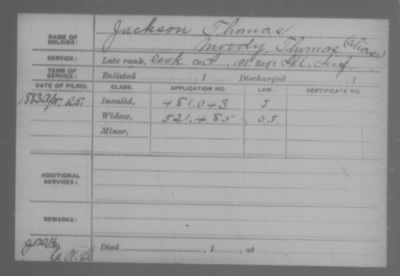 NAME OF SOLDIER: Jackson Thomas
Moody, Thomas (Alias)
SERVICE: Late rank, Cook Co. 108 Reg't Inf.
TERM OF SERVICE: Enlisted , 1 Discharged , 1
DATE OF FILING. CLASS. APPLICATION NO. LAW. CERTIFICATE NO.
1883 Apr. 25. Invalid, 481,043 J
Widow, 521,485 O J
Minor,
ADDITIONAL SERVICES:
REMARKS:
Died , 1 , at